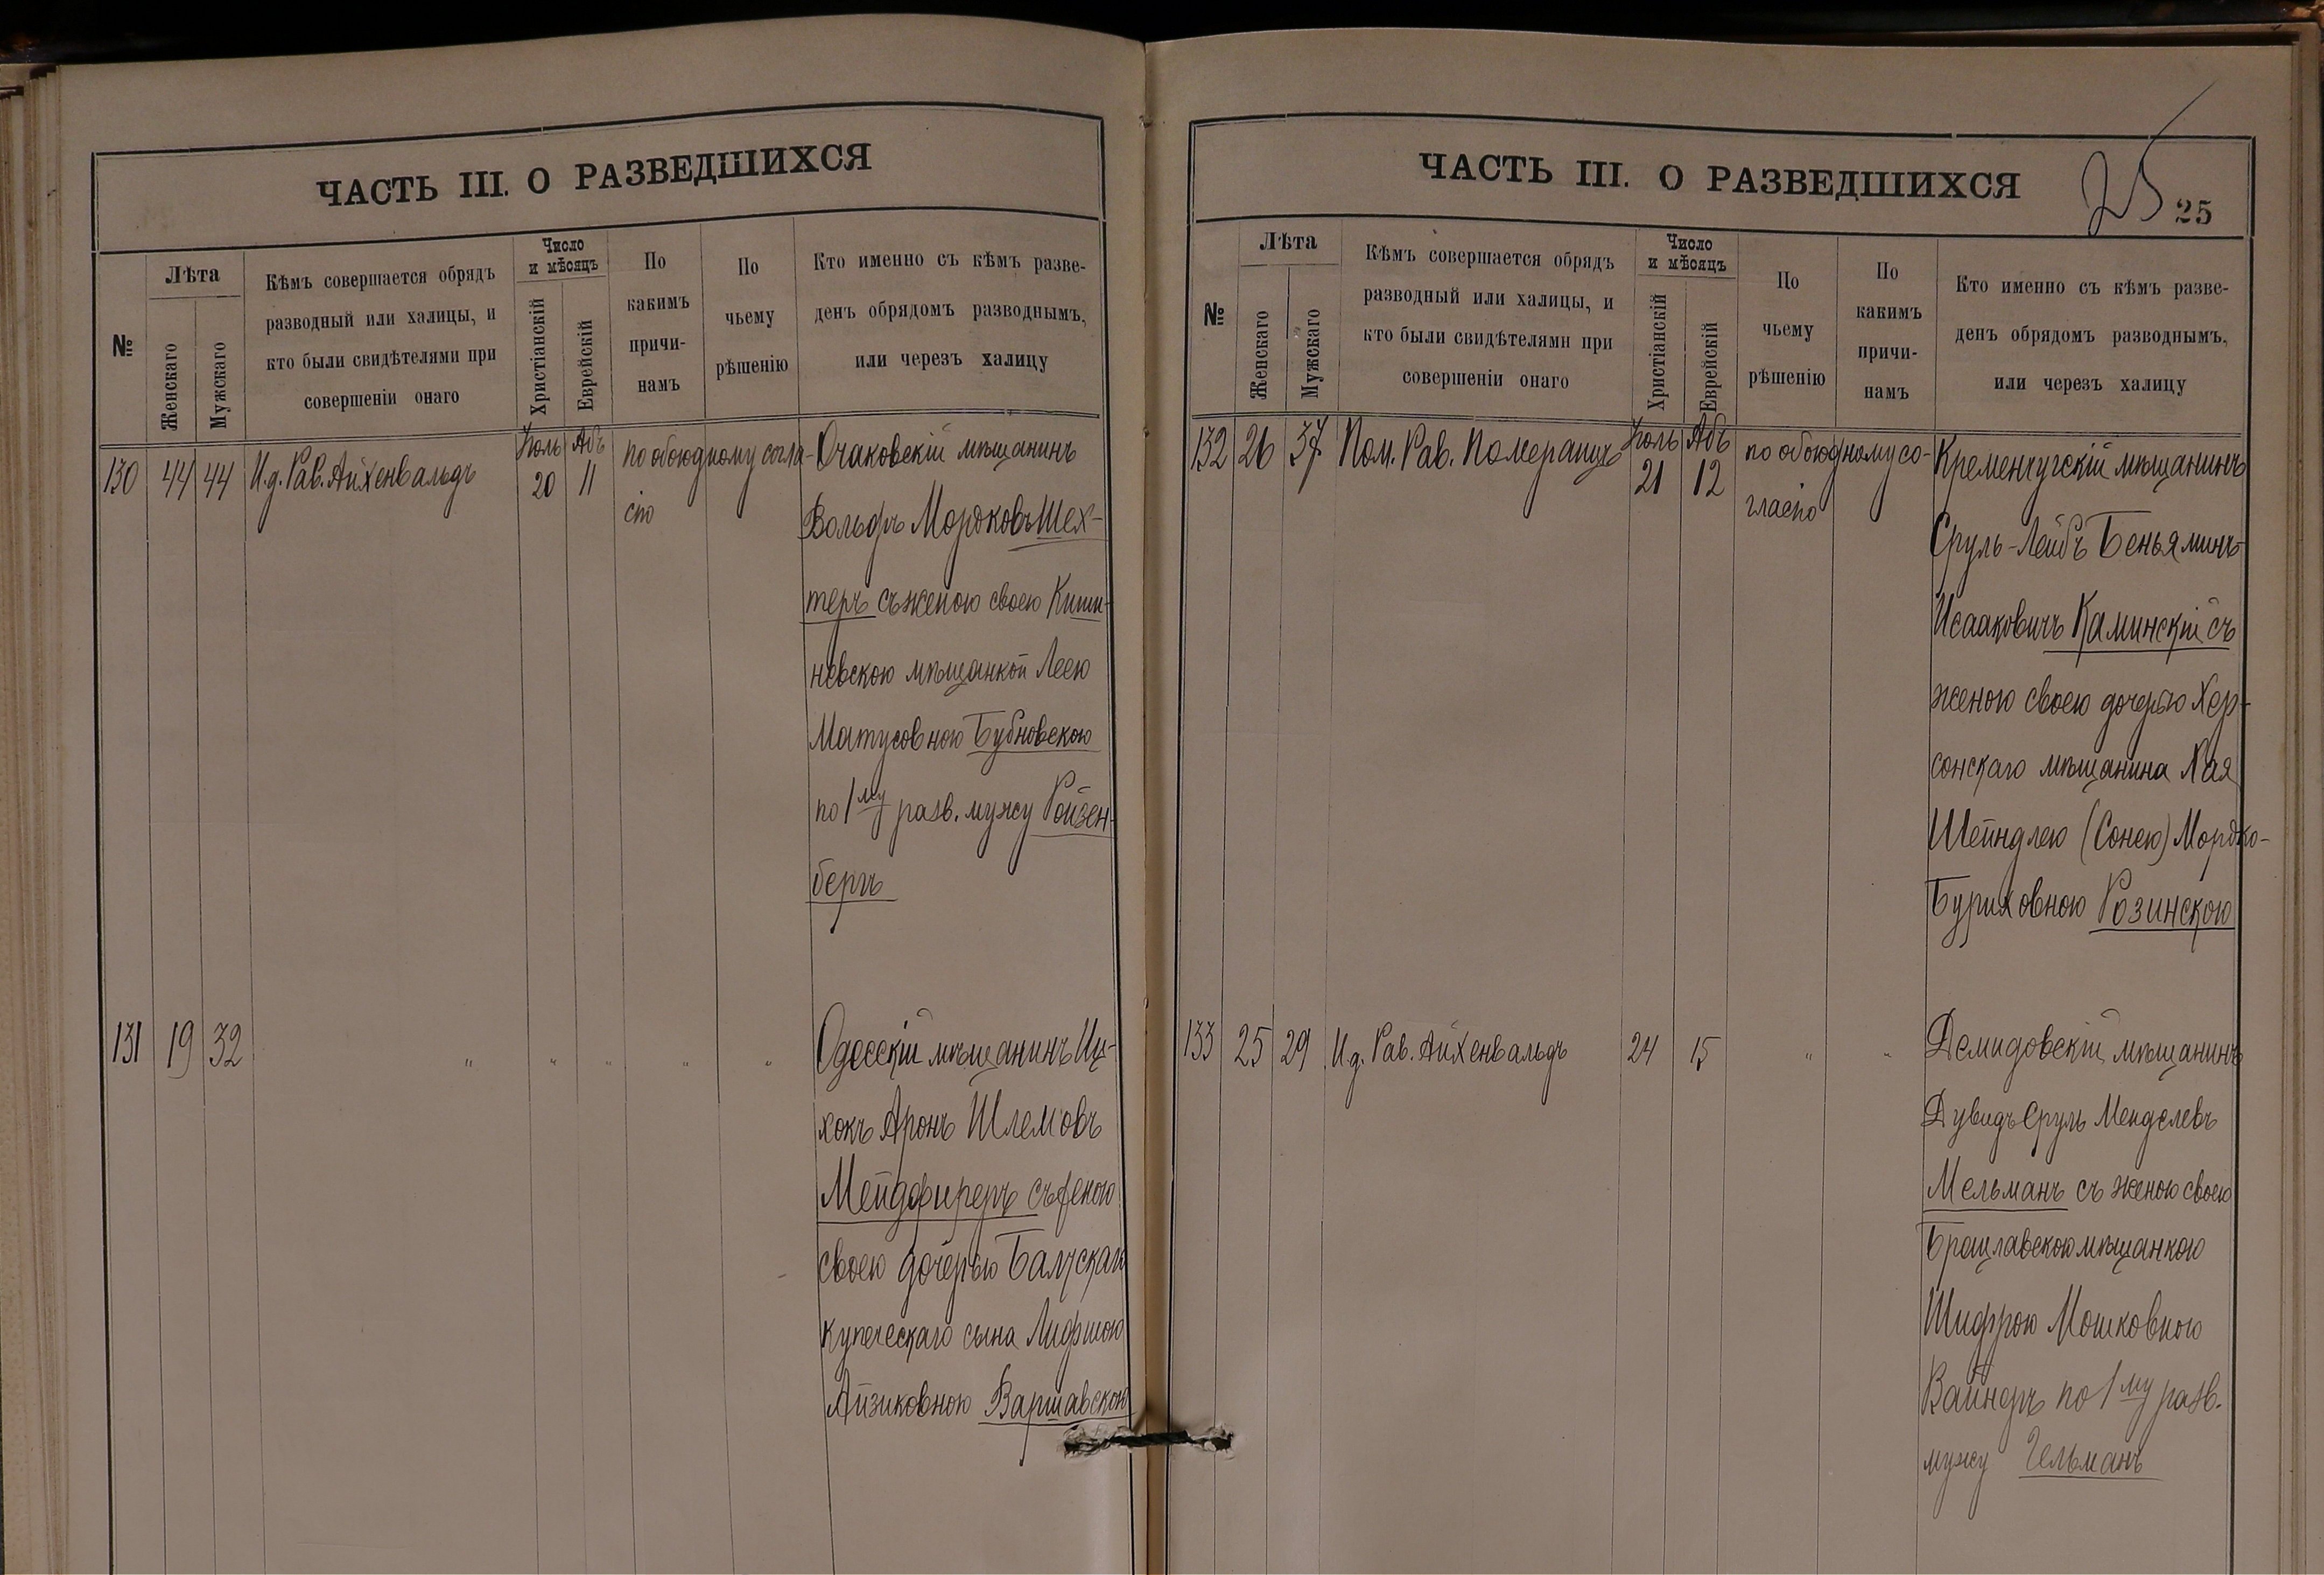 ЧАСТЬ III. О РАЗВЕДШИХСЯ
№
Лѣта
Женскаго
Мужскаго
Кѣмъ совершается обрядъ
разводный или халицы, и
кто были свидѣтелями при
совершеніи онаго
Число
и мѣсяцъ
Христіанскій
Еврейскій
По
какимъ
причи-
намъ
По
чьему
рѣшенію
Кто именно съ кѣмъ разве-
денъ обрядомъ разводнымъ,
или черезъ халицу
Іюль Абъ
130 44 44 И.д. Рав. Айхенвальдъ 20 11 по обоюдному согла-
сію
Очаковскій мѣщанинъ
Вольфъ Мордковъ Шех-
теръ съ женою своею Киши-
невскою мѣщанкой Леею
Матусовною Бубновскою
по 1му разв. мужу Ройзен-
бергъ
131 19 32 " " " " "
Одесскій мѣщанинъ Иц-
хокъ Аронъ Шлемовъ
Мейдфиреръ съ женою
своею дочерью Балтскаго
купеческаго сына Лифшою
Айзиковною Варшавскою
ЧАСТЬ III. О РАЗВЕДШИХСЯ
25
25
№
Лѣта
Женскаго
Мужскаго
Кѣмъ совершается обрядъ
разводный или халицы, и
кто были свидѣтелями при
совершеніи онаго
Число
и мѣсяцъ
Христіанскій
Еврейскій
По
чьему
рѣшенію
По
какимъ
причи-
намъ
Кто именно съ кѣмъ разве-
денъ обрядомъ разводнымъ,
или черезъ халицу
Іюль Абъ
132 26 37 Пом. Рав. Померанцъ 21 12 по обоюдному со-
гласію
Кременчугскій мѣщанинъ
Сруль-Лейбъ Беньяминъ-
Исааковичъ Каминскій съ
женою своею дочерью Хер-
сонскаго мѣщанина Хая
Шейндлею (Сонею) Мордко-
Буриховною Розинскою
133 25 29 И.д. Рав. Айхенвальдъ 24 15 " "
Демидовскій мѣщанинъ
Дувидъ Сруль Менделевъ
Мельманъ съ женою своею
Брацлавскою мѣщанкою
Шифрою Мошковною
Вайнеръ по 1му разв.
мужу Гельманъ